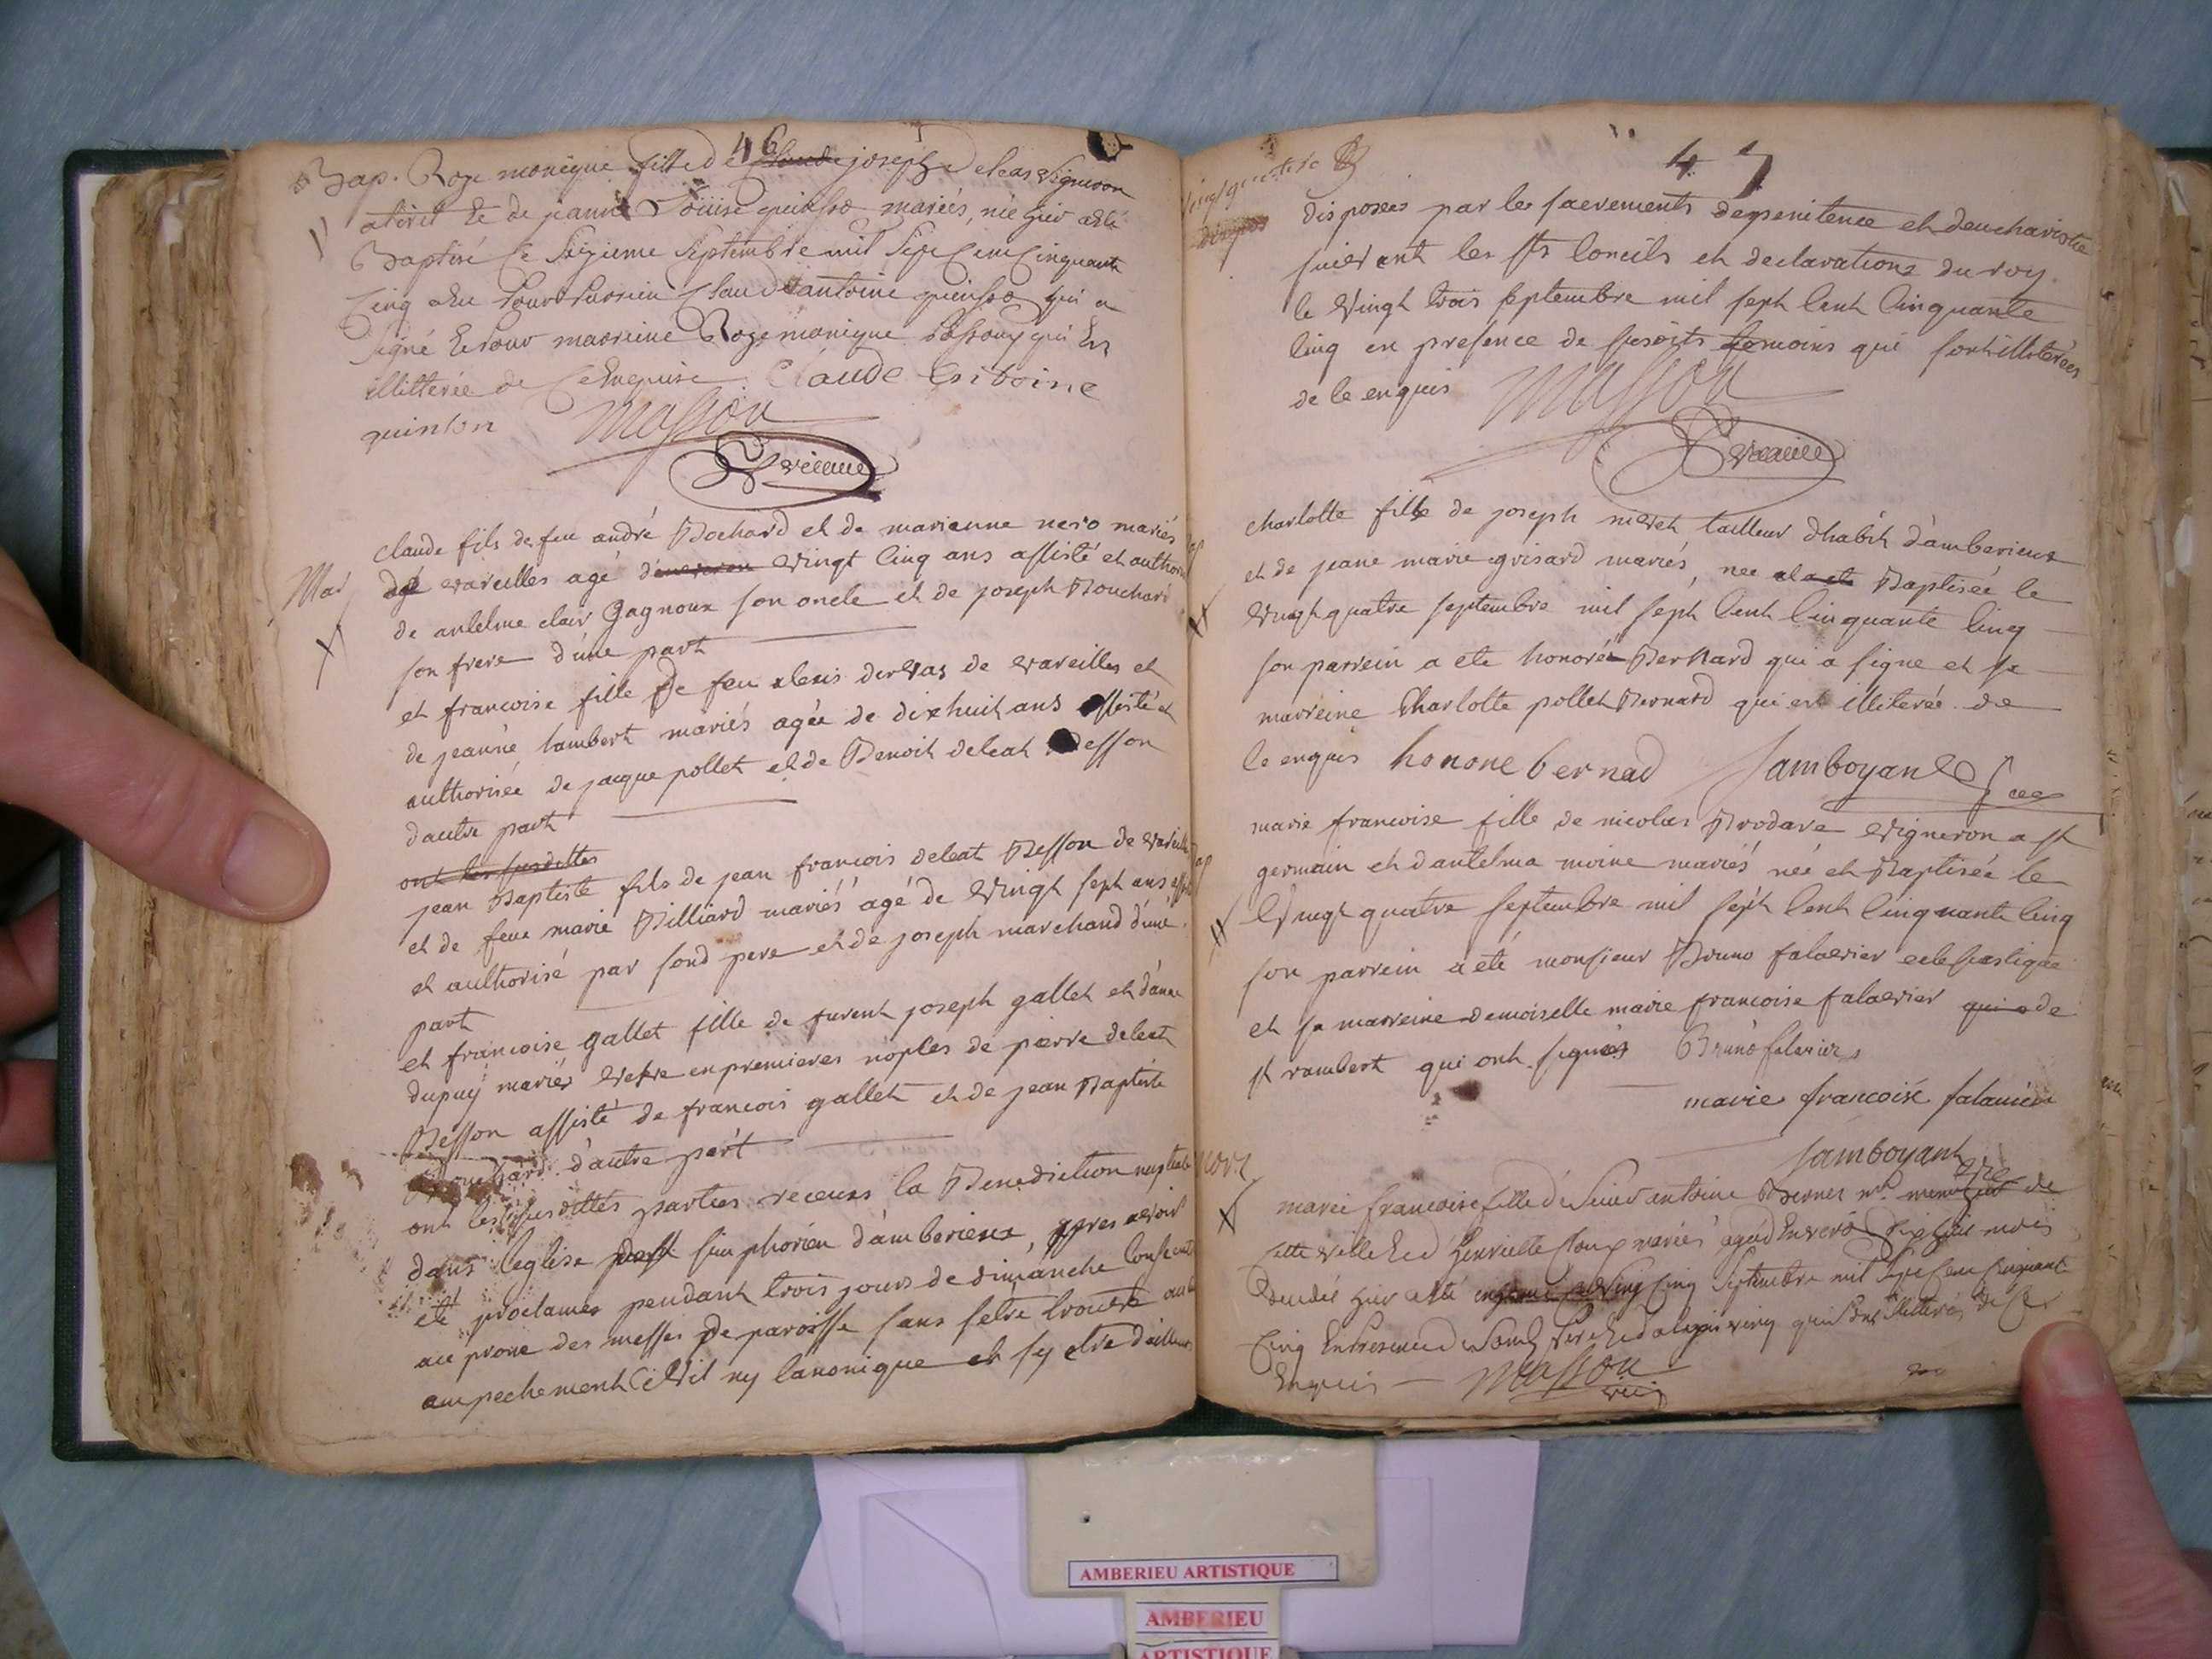 46
Bap. Roze monique fille de claude joseph deleas vigneron
a tiret & de jeanne Loüise quinson mariés, née hier a été
Baptisé ce Seizieme Septembre mil Sept Cent Cinquante
Cinq a Eu Pour Parrein Claude antoine quinson qui a
signé & Pour marreine Roze monique qui Est
illitterée de Ce Enquise. Claude Antoine
quinson Masson
vicaire
Mar
claude fils de feu andré Bochard et de marianne nero mariés
de vareilles agé d'environ vingt cinq ans assisté et authorisé
de antelme clair gagnoux son oncle et de joseph Bouchard
son frere d'une part
et francoise fille de feu alexis dervas de vareilles et
de jeanne lambert mariés agée de dixhuit ans assisté et
authorisée de jacque pollet et de Benoit deleat Besson
d'autre part
ont les susdittes
jean Baptiste fils de jean francois deleat Besson de vareilles
et de feue marie Billiard mariés agé de vingt sept ans assisté
et authorisé par sond pere et de joseph marchand d'une
part
et francoise gallet fille de furent joseph gallet et d'anne
dupuy mariés vefve en premieres nopces de pierre deleat
Besson assisté de francois gallet et de jean Baptiste
Bouchard d'autre part
ont les susdittes parties receus la Benediction nuptiale
dans l'eglise de st simphorien d'amberieux, apres avoir
eté proclames pendant trois jours de dimanche
au prone des messes de paroisse sans s'etre trouvé
ampechement civil ny canonique et s'y etre d'ailleurs
47
disposées par les sacrements de penitence et d'eucharistie
suivant les sts concils et declarations du roy
le vingt trois septembre mil sept cent cinquante
cinq en presence de susdits temoins qui sont illiterées
de ce enquis Masson
vicaire
Bap
charlotte fille de joseph mevet tailleur d'habit d'amberieux
et de jeane marie grisard mariés, née a la ete Baptisée le
vingt quatre septembre mil sept cent cinquante cinq
son parrein a ete honoré Bernard qui a signe et sa
marreine Charlotte pollet Bernard qui est illiterée de
ce enquis honone bernad Jamboyant
Bap
marie francoise fille de nicolas Brodave vigneron a st
germain et d'antelma moine mariés née et Baptisée le
vingt quatre septembre mil sept cent cinquante cinq
son parrein a eté monsieur Bruno falavier eclesiastique
et sa marreine demoiselle marie francoise falavier qui a de
st rambert qui ont signés Bruno falavier
marie francoise falavier
Jamboyant
mort
marie francoise fille de Sieur antoine Bernes de
cette ville & d'henriette mariés agée d'Environ dix huit mois
decedée hier a été cinq Septembre mil Sept Cent Cinquante
Cinq En presence de qui Sont illitterés de Ce
Enquis Masson
vic
AMBERIEU ARTISTIQUE
AMBERIEU
ARTISTIQUE